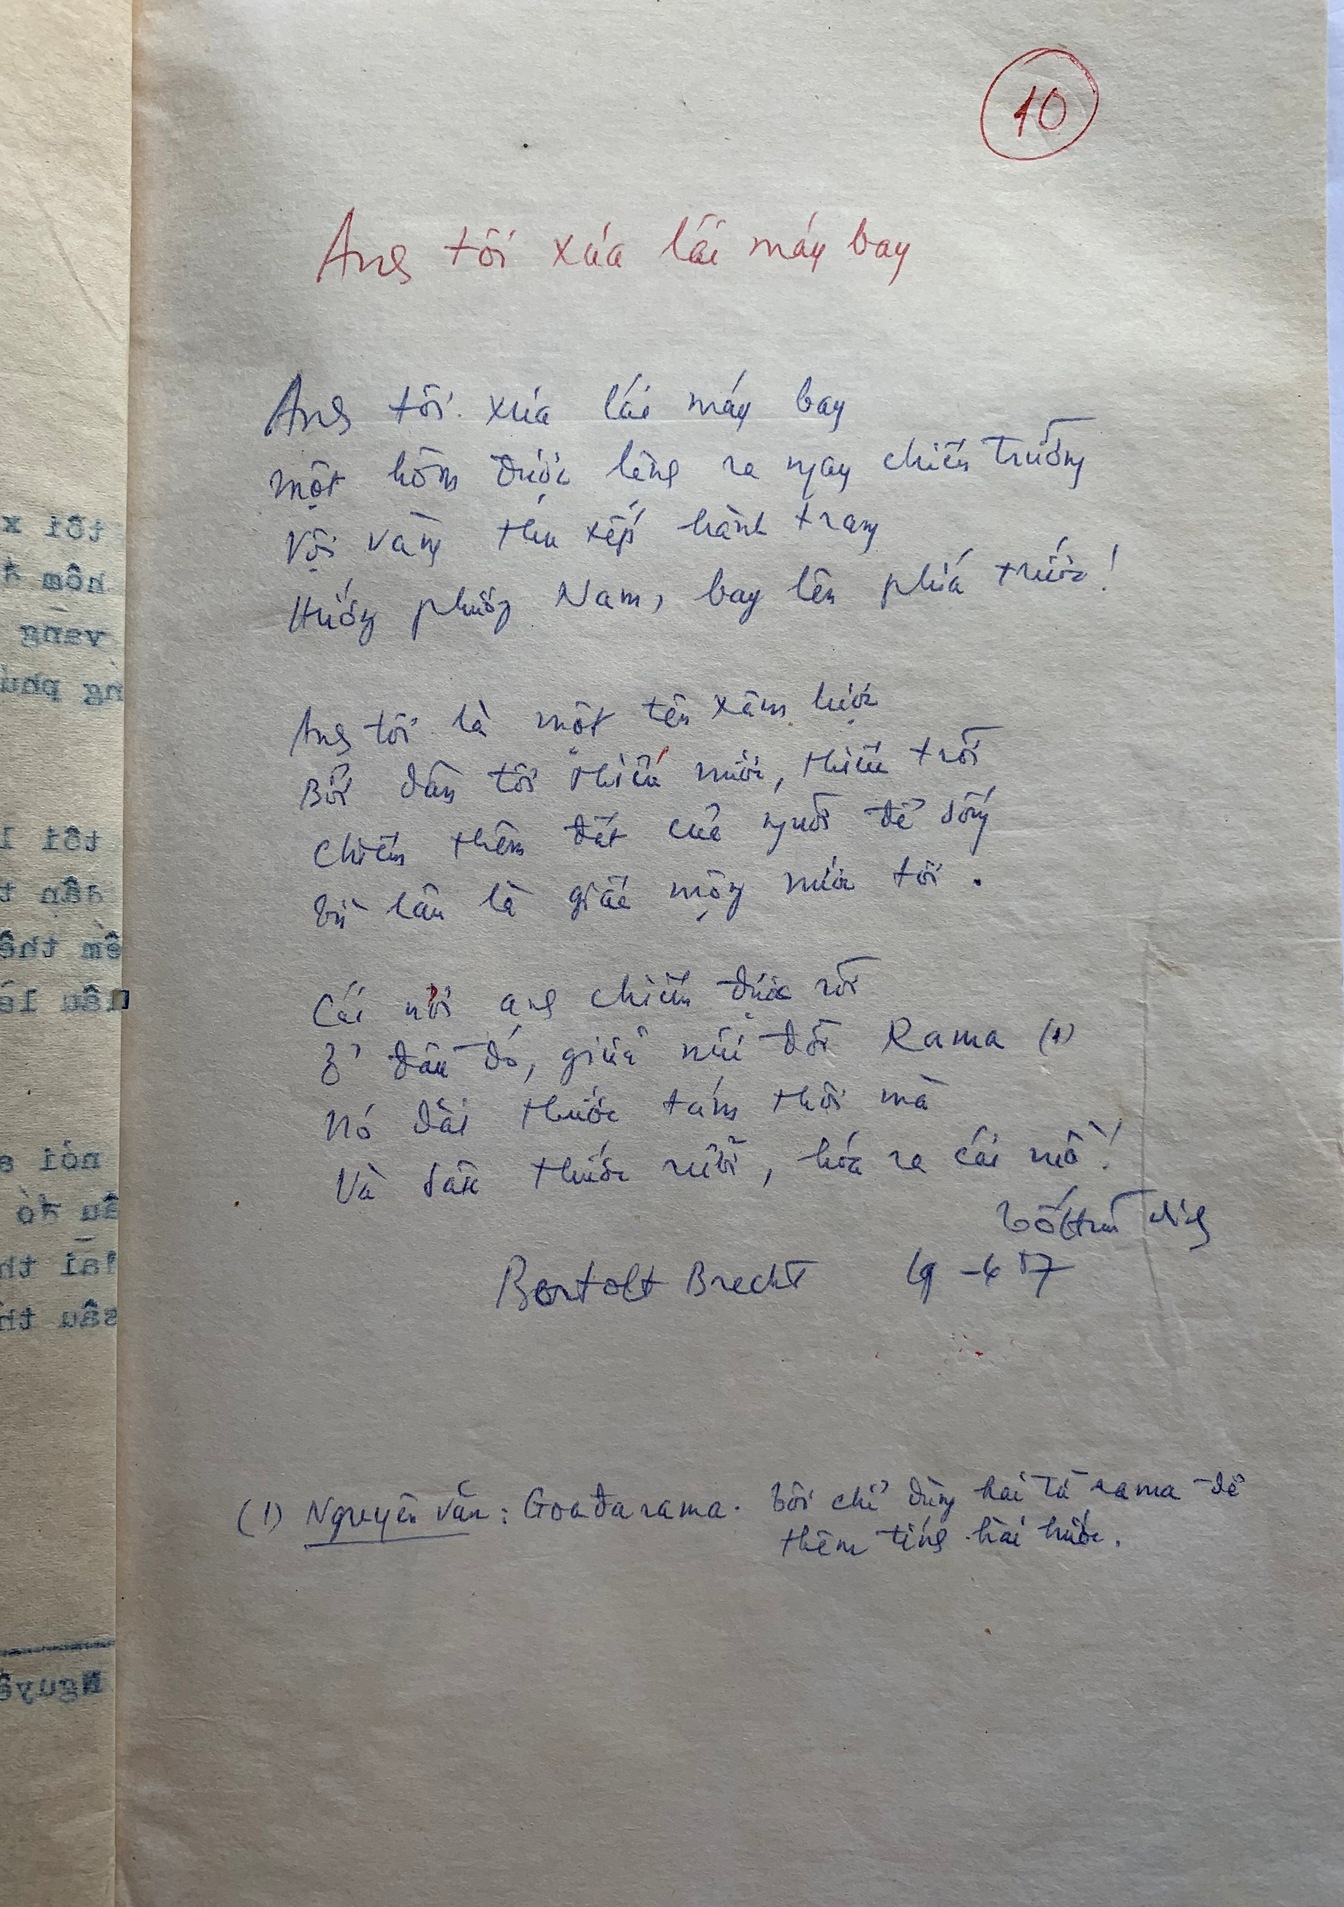 10
Anh tôi xưa lái máy bay
Anh tôi xưa lái máy bay
Một hôm được lệnh ra ngay chiến trường
Vội vàng thu xếp hành trang
Hướng phương Nam, bay lên phía trước!
Anh tôi là một tên xâm lược
Bởi dân tôi thiếu nước, thiếu trời
Chiếm thêm đất của người để sống
Từ lâu là giấc mộng nước tôi.
Cái nơi anh chiếm được rồi
Ở đâu đó, giữa núi đồi Rama (1)
Nó dài thước tám thôi mà
Và sâu thước rưỡi, hóa ra cái mồ!
Bertolt Brecht 19-4 87
(1) Nguyên văn: Goađarama. Tôi chỉ dùng hai từ rama để
thêm tiếng hài hước.
tôi x
hôm đ
vang
ng phư
tôi l
dân t
ếm thê
lâu là
nơi a
âu đó
dài th
sâu th
Nguyê